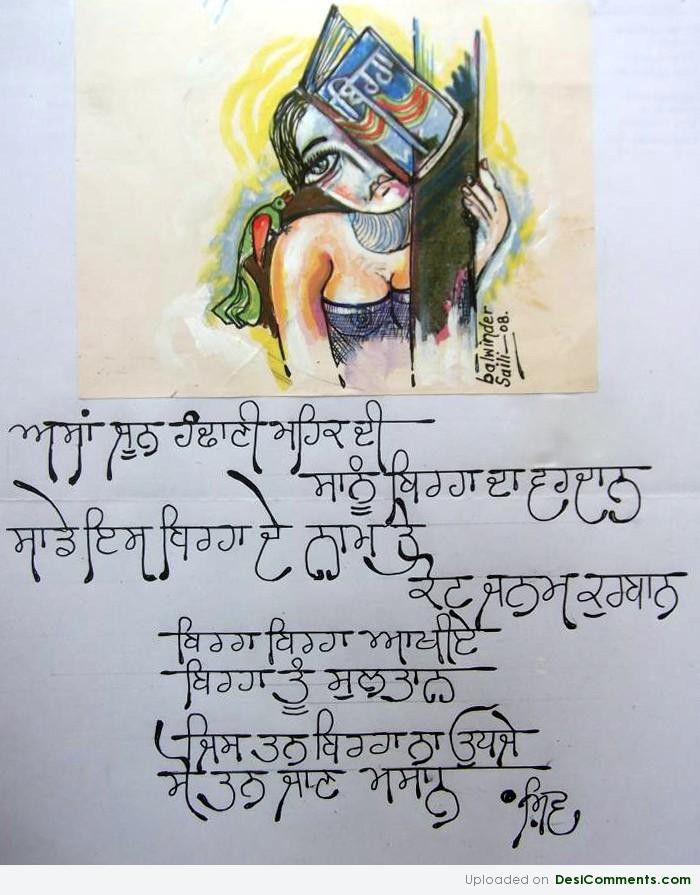 ਬਿਰਹਾ
balwinder
Saili—08.
ਅਸਾਂ ਜੂਨ ਹੰਢਾਣੀ ਮਹਿਕ ਦੀ
ਸਾਨੂੰ ਬਿਰਹਾ ਦਾ ਵਰਦਾਨ
ਸਾਡੇ ਇਸ ਬਿਰਹਾ ਦੇ ਨਾਮ ਤੇ
ਕੋਟ ਜਨਮ ਕੁਰਬਾਨ
ਬਿਰਹਾ ਬਿਰਹਾ ਆਖੀਏ
ਬਿਰਹਾ ਤੂੰ ਸੁਲਤਾਨ
ਜਿਸ ਤਨ ਬਿਰਹਾ ਨਾ ਉਪਜੇ
ਸੋ ਤਨ ਜਾਣ ਮਸਾਨ
•ਸ਼ਿਵ
Uploaded on DesiComments.com